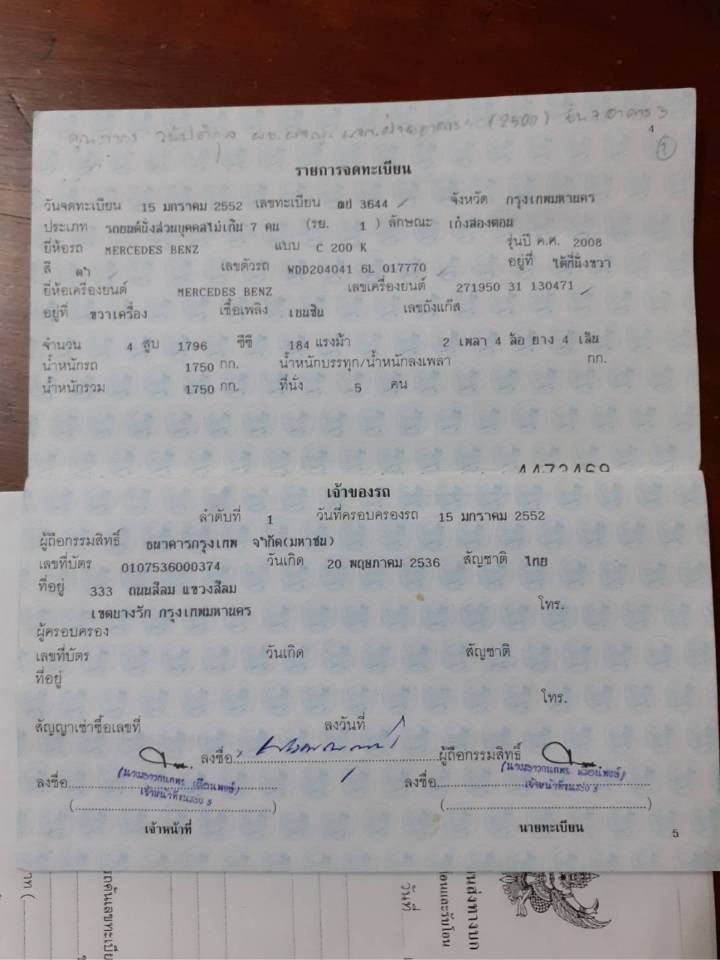 คุณภากร (2500) ชั้น 7 อาคาร 3
4
1
รายการจดทะเบียน
วันจดทะเบียน 15 มกราคม 2552 เลขทะเบียน 3644 จังหวัด กรุงเทพมหานคร
ประเภท รถยนต์นั่งส่วนบุคคลไม่เกิน 7 คน (รย. 1 ) ลักษณะ เก๋งสองตอน
ยี่ห้อรถ MERCEDES BENZ แบบ C 200 K รุ่นปี ค.ศ. 2008
สี ดำ เลขตัวรถ WDD204041 6L 017770 อยู่ที่ ใต้ที่นั่งขวา
ยี่ห้อเครื่องยนต์ MERCEDES BENZ เลขเครื่องยนต์ 271950 31 130471
อยู่ที่ ขวาเครื่อง เชื้อเพลิง เบนซิน เลขถังแก๊ส
จำนวน 4 สูบ 1796 ซีซี 184 แรงม้า 2 เพลา 4 ล้อ ยาง 4 เส้น
น้ำหนักรถ 1750 กก. น้ำหนักบรรทุก/น้ำหนักลงเพลา กก.
น้ำหนักรวม 1750 กก. ที่นั่ง 5 คน
4473469
เจ้าของรถ
ลำดับที่ 1 วันที่ครอบครองรถ 15 มกราคม 2552
ผู้ถือกรรมสิทธิ์ ธนาคารกรุงเทพ จำกัด(มหาชน)
เลขที่บัตร 0107536000374 วันเกิด 20 พฤษภาคม 2536 สัญชาติ ไทย
ที่อยู่ 333 ถนนสีลม แขวงสีลม
เขตบางรัก กรุงเทพมหานคร โทร.
ผู้ครอบครอง
เลขที่บัตร วันเกิด สัญชาติ
ที่อยู่
โทร.
สัญญาเช่าซื้อเลขที่ ลงวันที่
ลงชื่อ ผู้ถือกรรมสิทธิ์
ลงชื่อ ลงชื่อ
เจ้าหน้าที่ขนส่ง 5 เจ้าหน้าที่ขนส่ง 5
เจ้าหน้าที่ นายทะเบียน
5